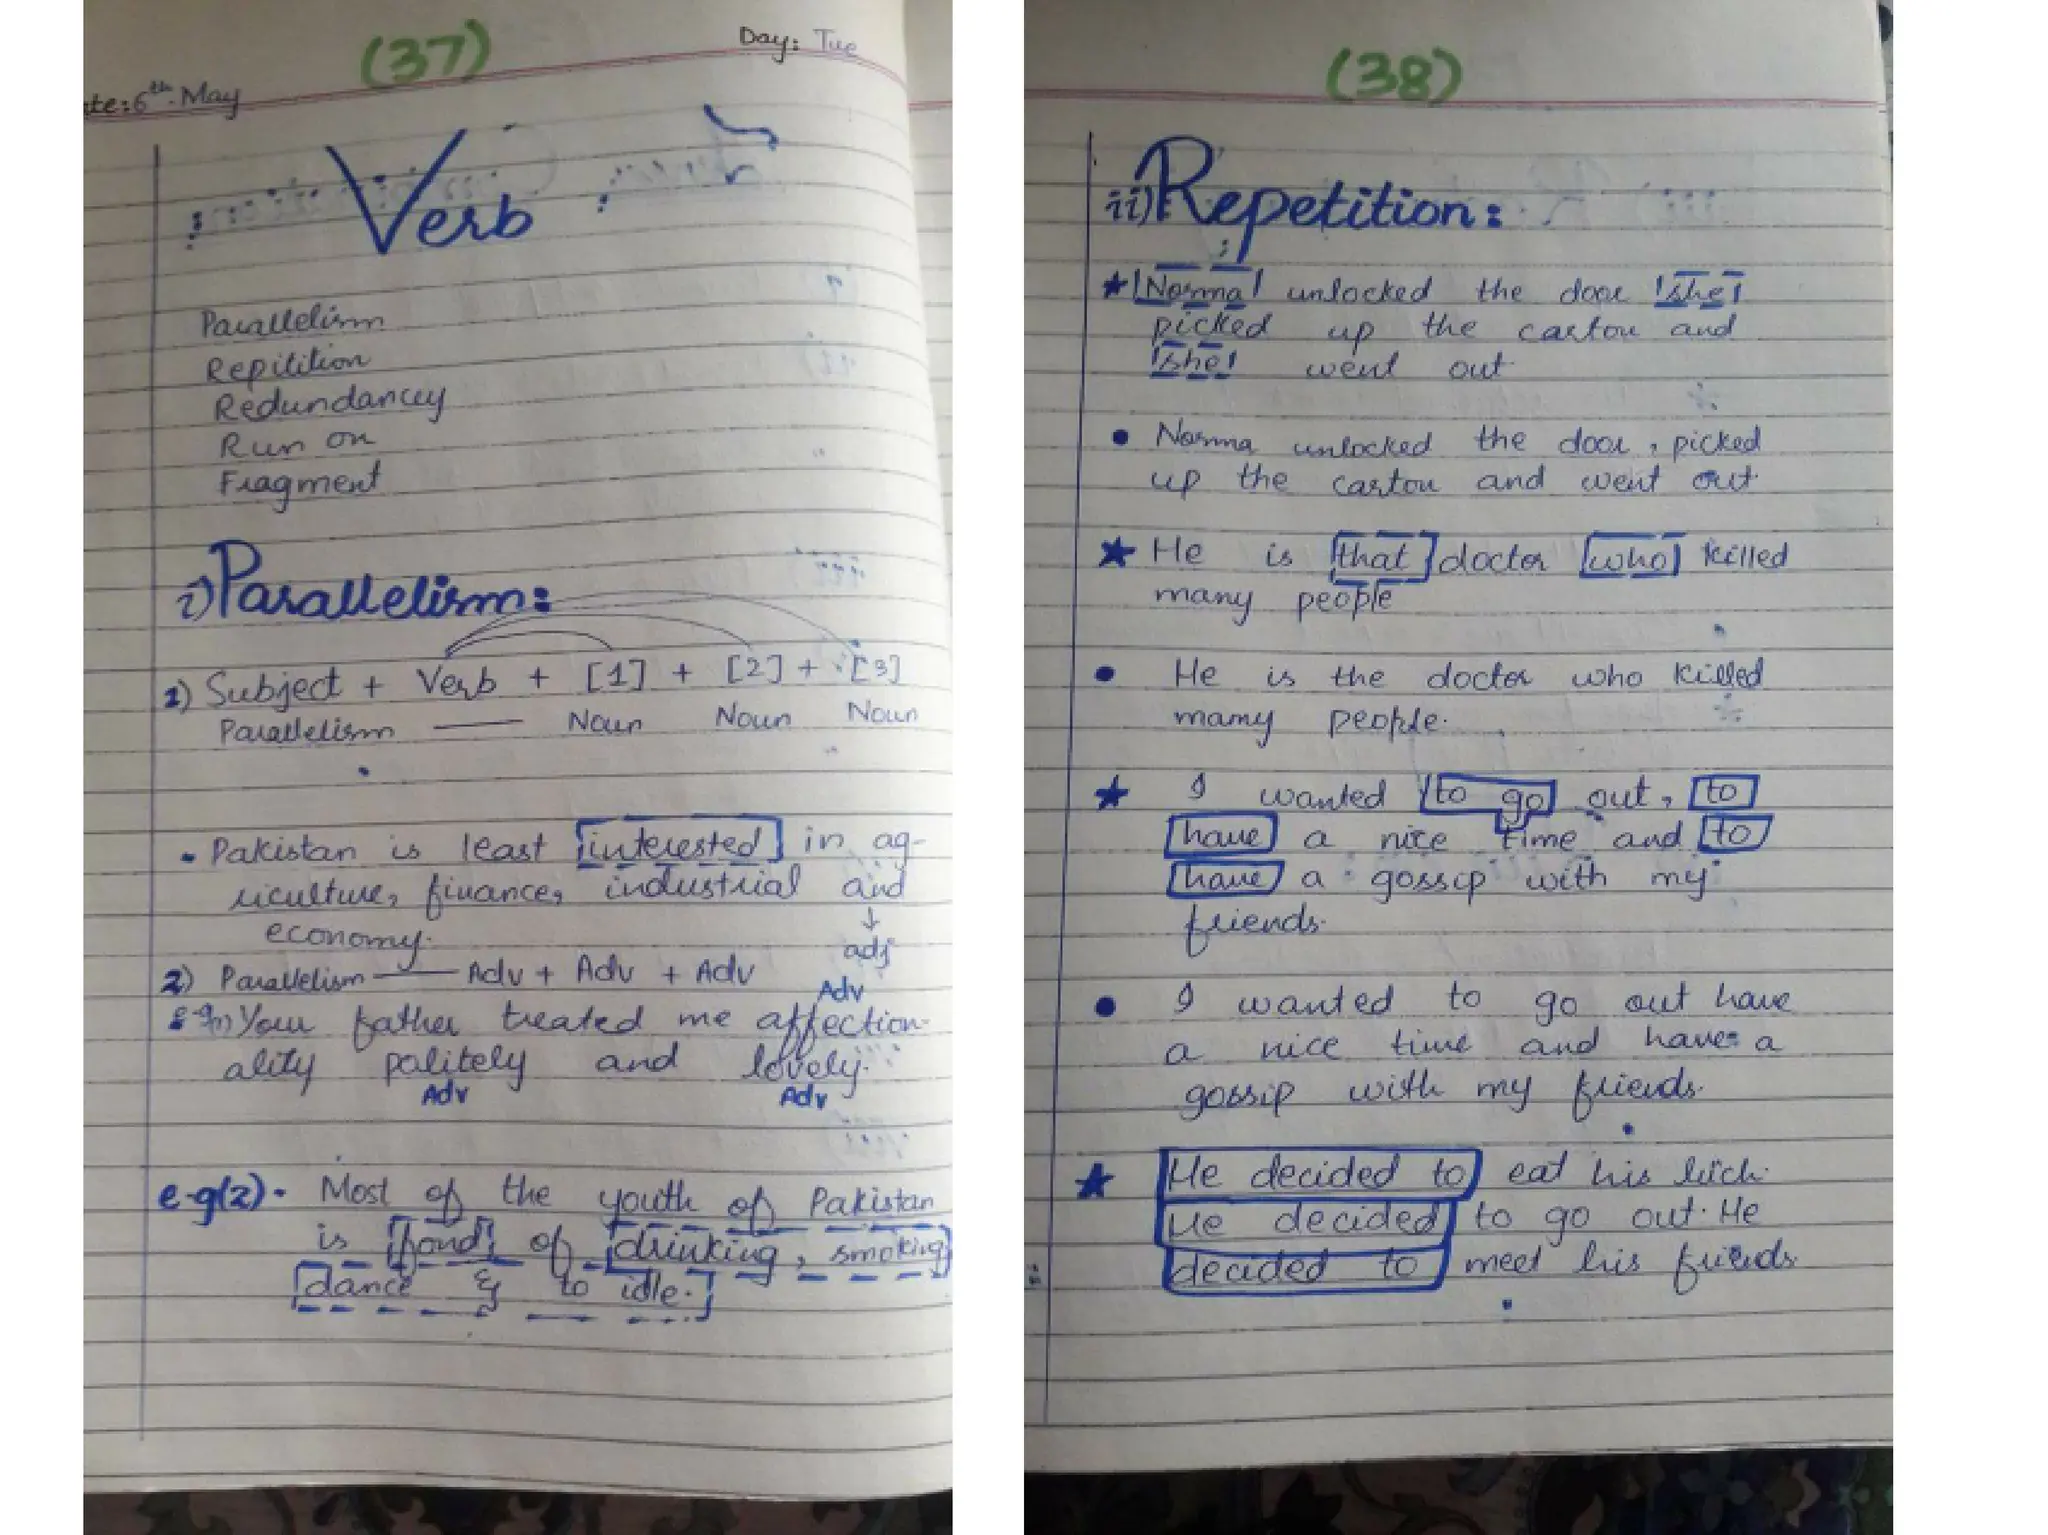 (37)
Day: Tue
ate: 6th May
Verb
Parallelism
Repitition
Redundancy
Run on
Fragment
i) Parallelism:
1) Subject + Verb + [1] + [2] + [3]
Parallelism — Noun Noun Noun
• Pakistan is least interested in ag-
riculture, finance, industrial and
economy.
↓
adj
2) Parallelism — Adv + Adv + Adv
Adv
e.g1) Your father treated me affection-
ality politely and lovely.
Adv Adv
e.g(2). Most of the youth of Pakistan
is fond of drinking, smoking
dance & to idle.
(38)
ii) Repetition:
★ Norma unlocked the door she
picked up the carton and
she went out
• Norma unlocked the door, picked
up the carton and went out
★ He is that doctor who killed
many people
• He is the doctor who killed
many people.
★ I wanted to go out, to
have a nice time and to
have a gossip with my
friends.
• I wanted to go out have
a nice time and have a
gossip with my friends.
★ He decided to eat his
He decided to go out. He
decided to meet his friends